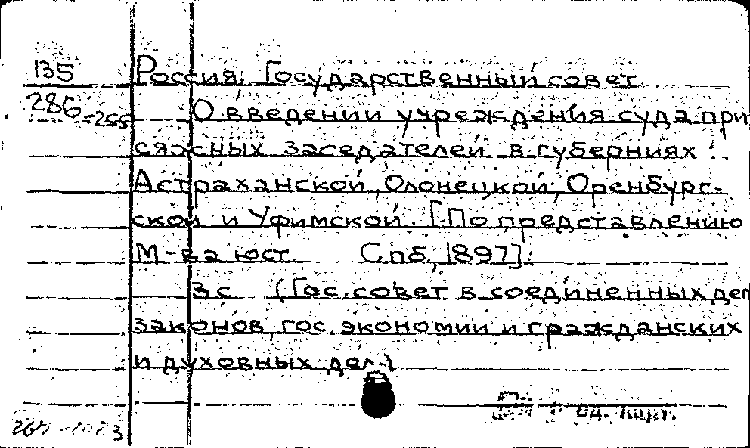 135 Россия. Государственный совет
286-265 О введении учреждения суда при
сяжных заседателей в губерниях
Астраханской, Олонецкой, Оренбург-
ской и Уфимской. [По представлению
М-ва юст. Спб, 1897].
3 с (Гос. совет в соединенных деп
законов, гос. экономии и гражданских
и духовных дел)